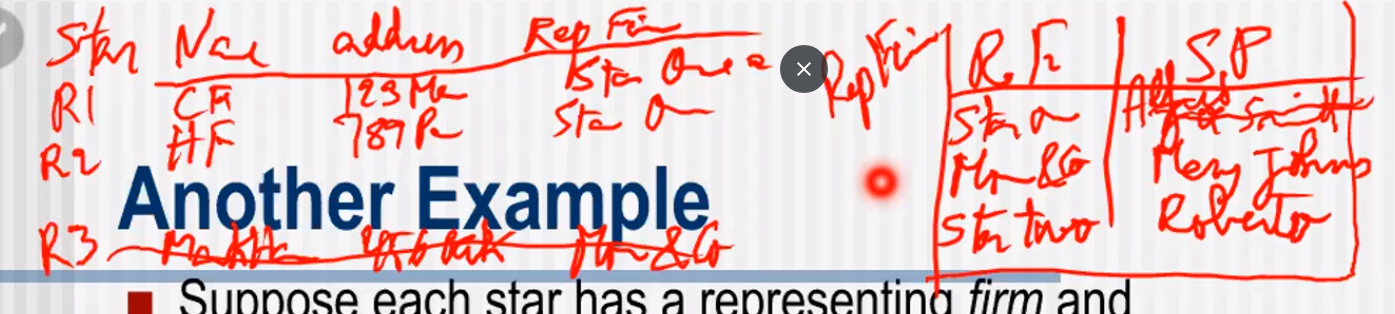 Star Name address Rep Firm
R1 CF 123 Ma Star One
R2 HF 789 Pa Star On
R3 Mn & Co
Rep Firm
R.F S.P
Star On Smith
Mn & Co Mary Johns
Star two Roberto
Another Example
Suppose each star has a representing firm and